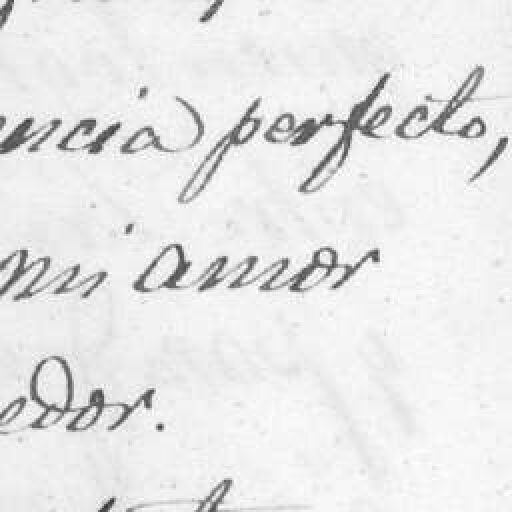 encia) perfecto,
mi amor
edor.